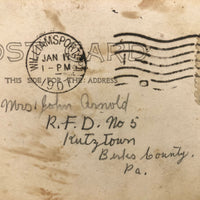 WILLIAMSPORT, PA.
JAN 11
1-PM
1907
POST CARD
THIS SIDE FOR THE ADDRESS
Mrs. John Arnold
R.F.D. No 5
Kutztown
Berks County.
Pa.